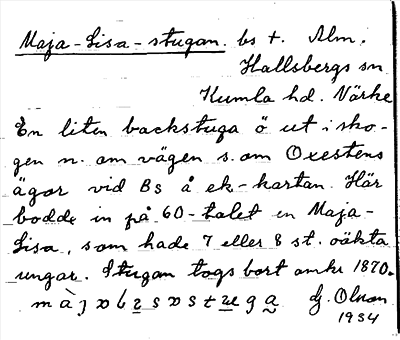 Maja-Lisa-stugan. bs t. Alm.
Hallsbergs sn
Kumla hd. Närke
En liten backstuga ö ut i sko-
gen n. om vägen s. om Oxestens
ägor vid Bs å ek-kartan. Här
bodde in på 60-talet en Maja-
Lisa, som hade 7 eller 8 st. oäkta
ungar. Stugan togs bort omkr 1870.
G. Olsson
1934